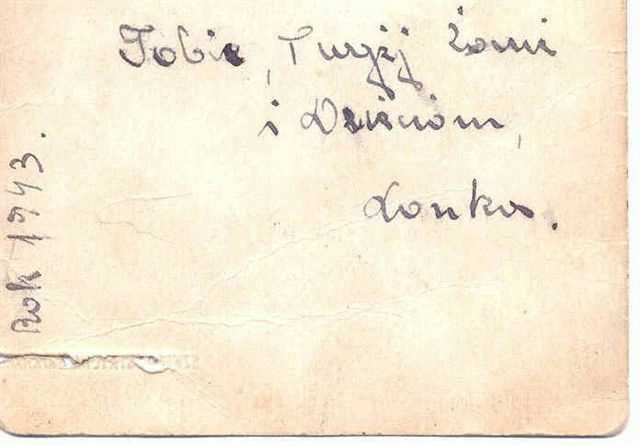 Tobie, Twojej żonie
i Dzieciom,
Lonka.
Rok 1943.